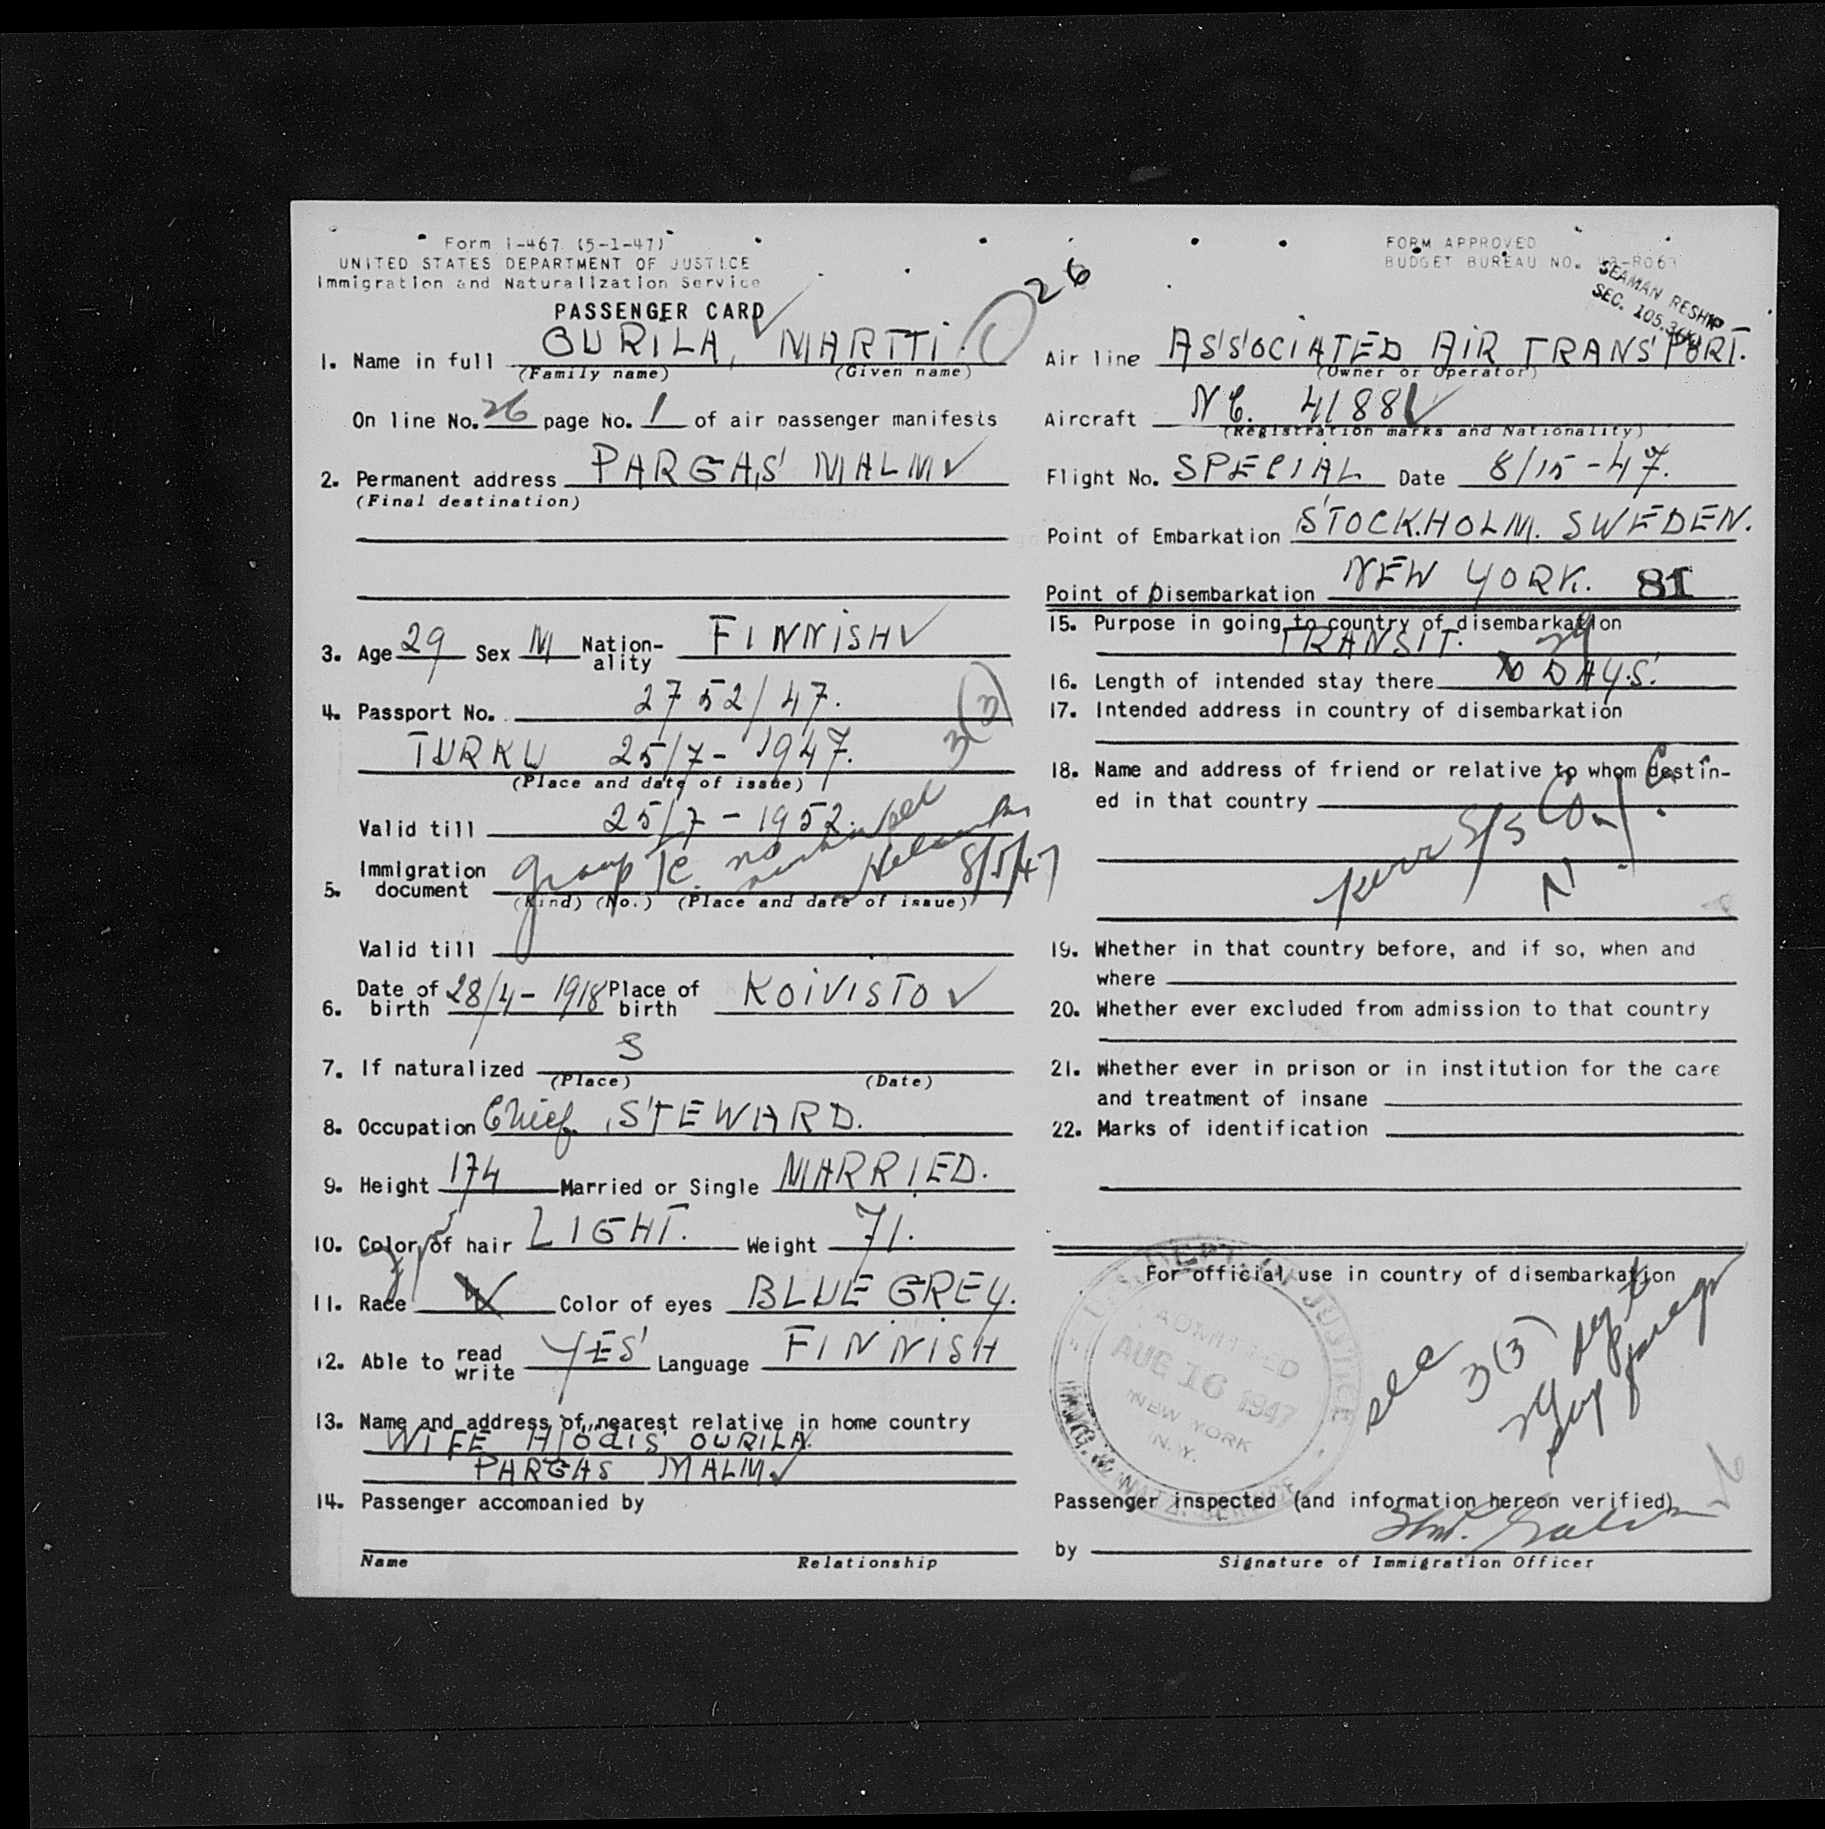 Form I-467 (5-1-47)
UNITED STATES DEPARTMENT OF JUSTICE
Immigration and Naturalization Service
PASSENGER CARD
FORM APPROVED
BUDGET BUREAU NO.
SEAMAN RESHIP
SEC. 105.
26
1. Name in full OURILA, MARTTI.
(Family name) (Given name)
On line No. 26 page No. 1 of air passenger manifests
2. Permanent address PARGAS MALM
(Final destination)
3. Age 29 Sex M Nation-ality FINNISH
4. Passport No. 2752/47.
3(3)
TURKU 25/7-1947.
(Place and date of issue)
Valid till 25/7-1952.
5. Immigration document group 8/5/47
(Kind) (No.) (Place and date of issue)
Valid till
6. Date of birth 28/4-1918 Place of birth KOIVISTO
7. If naturalized S
(Place) (Date)
8. Occupation Chief STEWARD.
9. Height 174 Married or Single MARRIED.
10. Color of hair LIGHT. Weight 71.
11. Race W Color of eyes BLUE GREY.
12. Able to read write YES Language FINNISH
13. Name and address of nearest relative in home country
WIFE OURILA
PARGAS MALM
14. Passenger accompanied by
Name Relationship
Air line ASSOCIATED AIR TRANSPORT.
(Owner or Operator)
Aircraft NC. 41881
(Registration marks and Nationality)
Flight No. SPECIAL Date 8/15-47.
Point of Embarkation STOCKHOLM. SWEDEN.
Point of Disembarkation NEW YORK. 81
15. Purpose in going to country of disembarkation
TRANSIT.
29
16. Length of intended stay there DAYS.
17. Intended address in country of disembarkation
18. Name and address of friend or relative to whom destin-
ed in that country
Kerr S/S Co.
N.
19. Whether in that country before, and if so, when and
where
20. Whether ever excluded from admission to that country
21. Whether ever in prison or in institution for the care
and treatment of insane
22. Marks of identification
For official use in country of disembarkation
U.S. DEPT. OF JUSTICE
ADMITTED
AUG 16 1947
NEW YORK
N.Y.
IMMIG. & NATZ. SERVICE
see 3(3)
29
Passenger inspected (and information hereon verified)
by
Signature of Immigration Officer